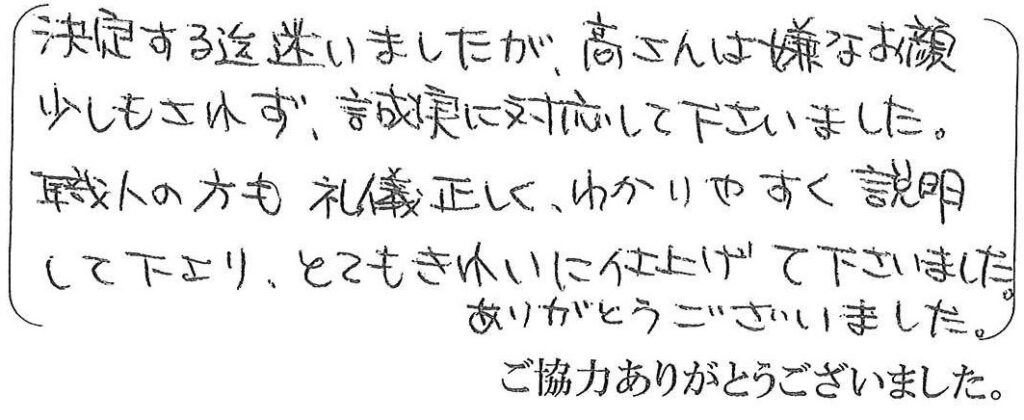 決定する迄迷いましたが、高さんは嫌なお顔
少しもされず、誠実に対応して下さいました。
職人の方も礼儀正しく、わかりやすく説明
して下さり、とてもきれいに仕上げて下さいました。
ありがとうございました。
ご協力ありがとうございました。